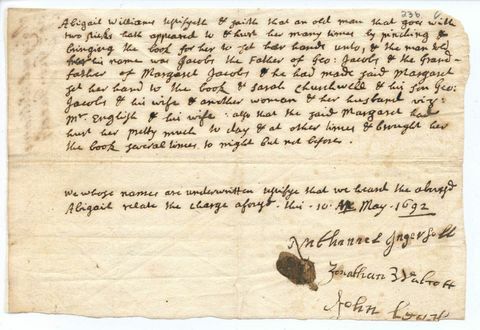 236
Abigail Williams testifyeth & saith that an old man that goes with
two sticks hath appeared to & hurt her many times by pinching &
bringing the book for her to set her hand unto, & the man told
her his name was Jacobs the Father of Geo: Jacobs & the Grand-
father of Margaret Jacobs & he had made said Margaret
set her hand to the book & Sarah Churchwell & his son Geo:
Jacobs & his wife & another woman & her husband viz:
Mr. English & his wife: also that the said Margaret had
hurt her pretty much to day & at other times & brought her
the book several times to night but not before.
We whose names are underwritten testifye that we heard the abovesd
Abigail relate the charge aforsd. this 10. May. 1692
Nathanael Ingersoll
Jonathan Walcott
John